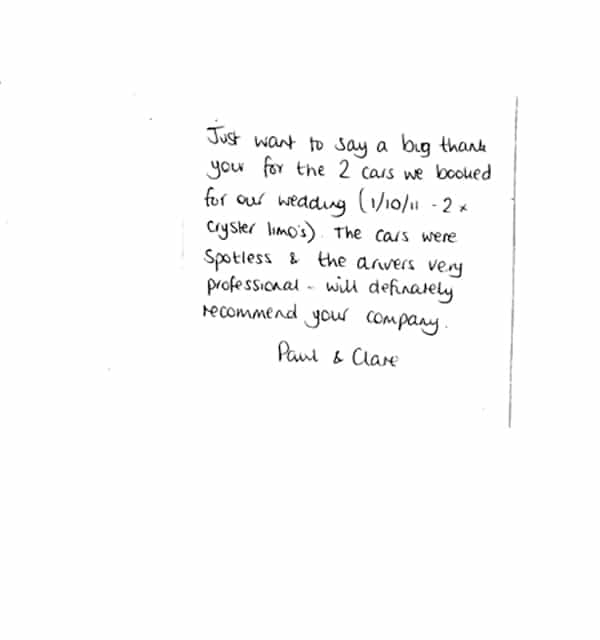 Just want to say a big thank
your for the 2 cars we booked
for our wedding (1/10/11 - 2 x
Cryster limo's). The cars were
Spotless & the drivers very
professional - will definately
recommend your company.
Paul & Clare